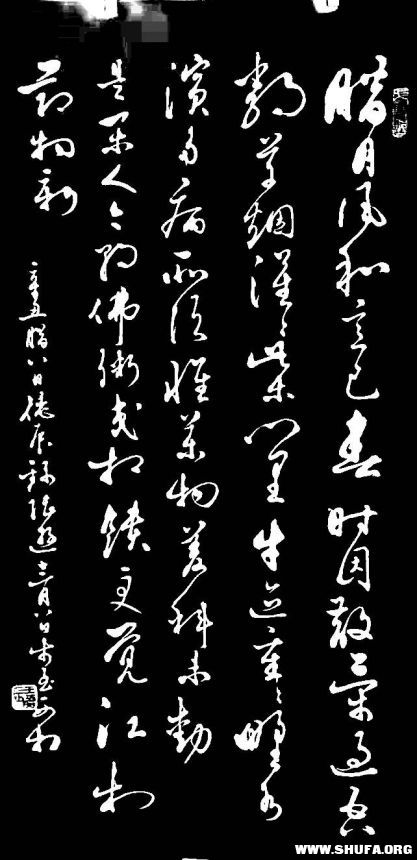 腊月风和意已春时因散策过吾
邻草烟漠〻柴门里牛迹重〻野水
滨多病所须惟药物差科未动
是闲人今朝佛粥交相馈更觉江村
节物新
辛丑腊八日录陆游十二月八日步至西村
WWW.SHUFA.ORG